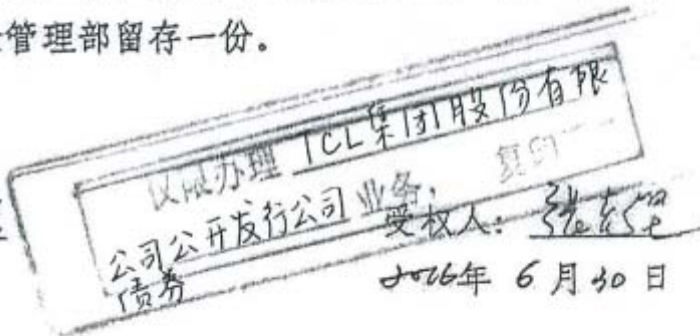 管理部留存一份。
仅限办理 TCL集团股份有限
公司公开发行公司 业务, 复印
债券
受权人:
2016年 6月30日